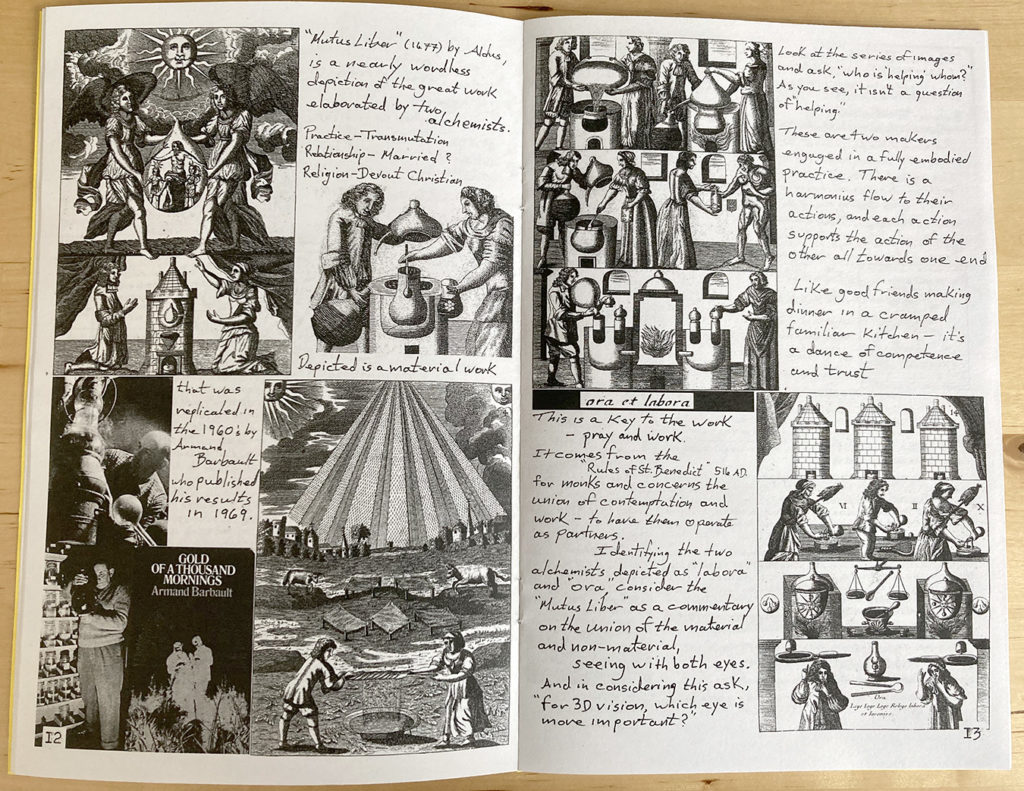 "Mutus Liber" (1677) by Aldus,
is a nearly wordless
depiction of the great work
elaborated by two
alchemists.
Practice - Transmutation
Relationship - Married ?
Religion - Devout Christian
Depicted is a material work
that was
replicated in
the 1960's by
Armand
Barbault
who published
his results
in 1969.
GOLD
OF A THOUSAND
MORNINGS
Armand Barbault
12
Look at the series of images
and ask, "who is helping whom?"
As you see, it isn't a question
of "helping."
These are two makers
engaged in a fully embodied
practice. There is a
harmonius flow to their
actions, and each action
supports the action of the
other all towards one end
Like good friends making
dinner in a cramped
familiar kitchen - it's
a dance of competence
and trust
ora et labora
This is a key to the work
- pray and work.
It comes from the
"Rules of St. Benedict" 516 AD.
for monks and concerns the
union of contemptation and
work - to have them operate
as partners.
Identifying the two
alchemists depicted as "labora"
and "ora", consider the
"Mutus Liber" as a commentary
on the union of the material
and non-material,
seeing with both eyes.
And in considering this ask,
"for 3D vision, which eye is
more important?"
14
VI
II
X
Ora
Lege Lege Lege Relege labora
et Invenies.
13